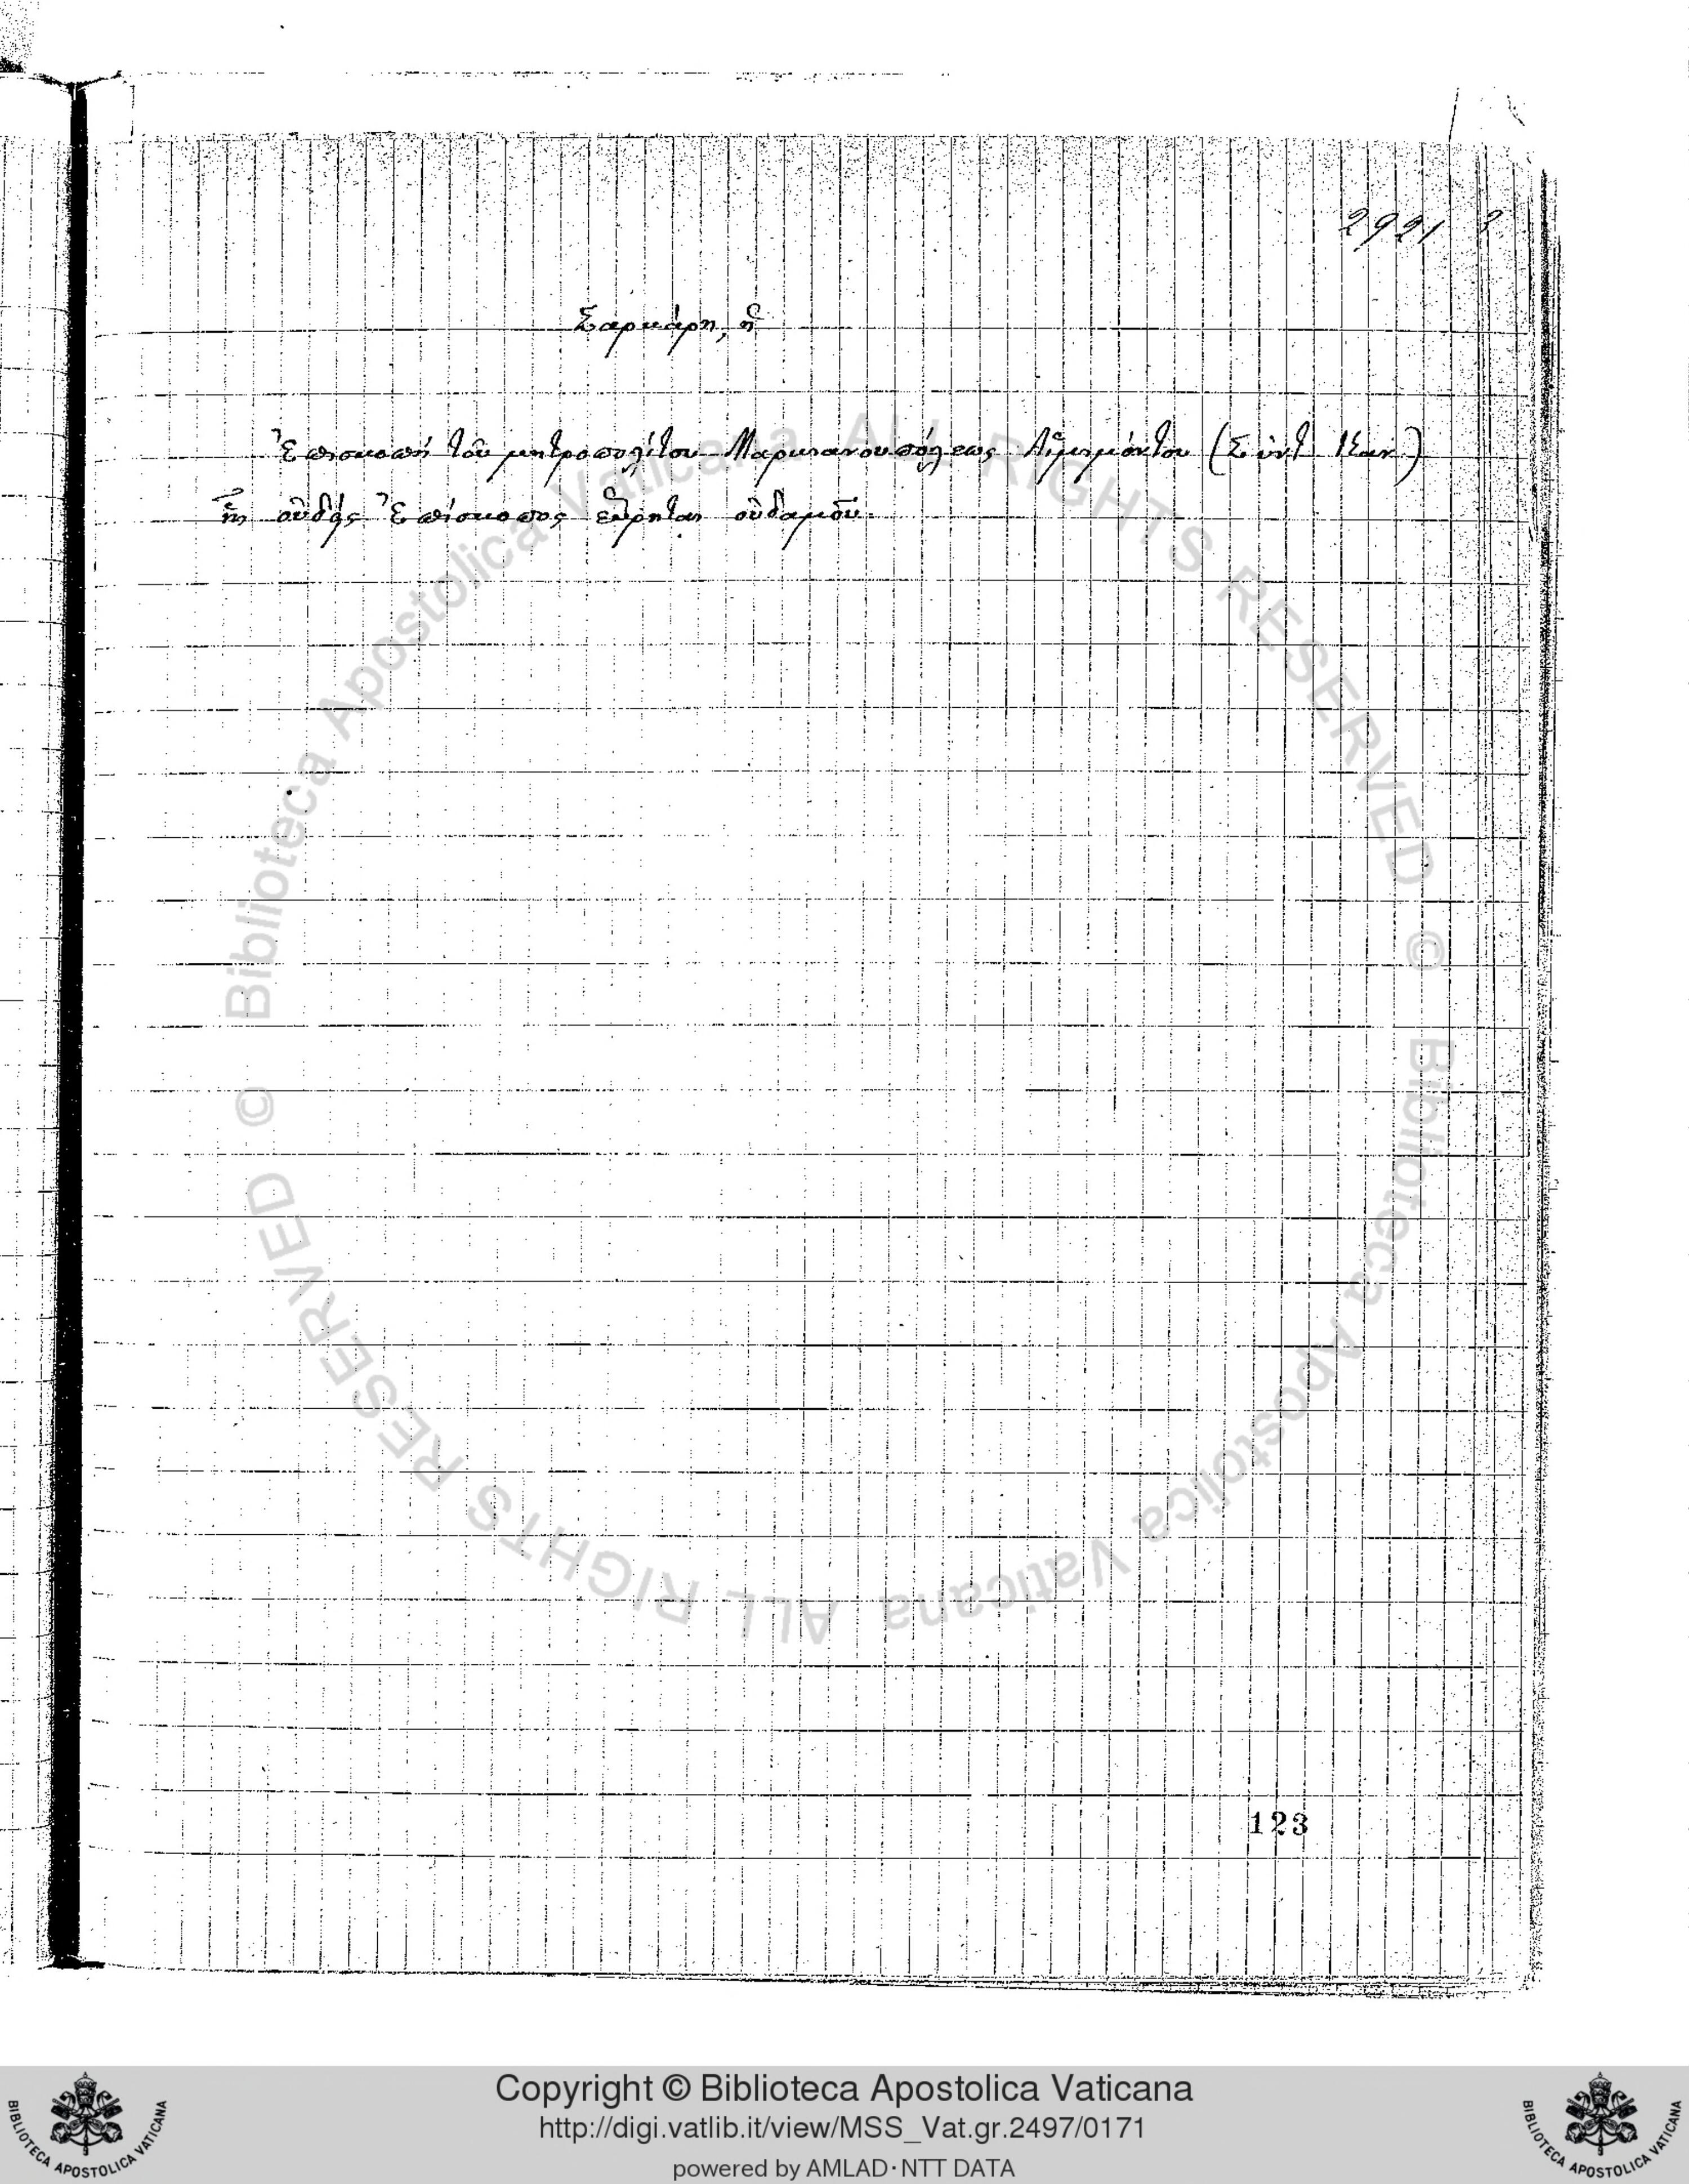 2921
Σαρκάρη, ἡ
Ἐπισκοπὴ τοῦ μητροπολίτου Μαρκιανουπόλεως Αἱμιμόντου (Σύντ. Καν.)
ἧς οὐδεὶς Ἐπίσκοπος εὕρηται οὐδαμοῦ.
123
© Biblioteca Apostolica Vaticana ALL RIGHTS RESERVED
© Biblioteca Apostolica Vaticana ALL RIGHTS RESERVED
Copyright © Biblioteca Apostolica Vaticana
http://digi.vatlib.it/view/MSS_Vat.gr.2497/0171
powered by AMLAD·NTT DATA
BIBLIOTECA APOSTOLICA VATICANA
BIBLIOTECA APOSTOLICA VATICANA